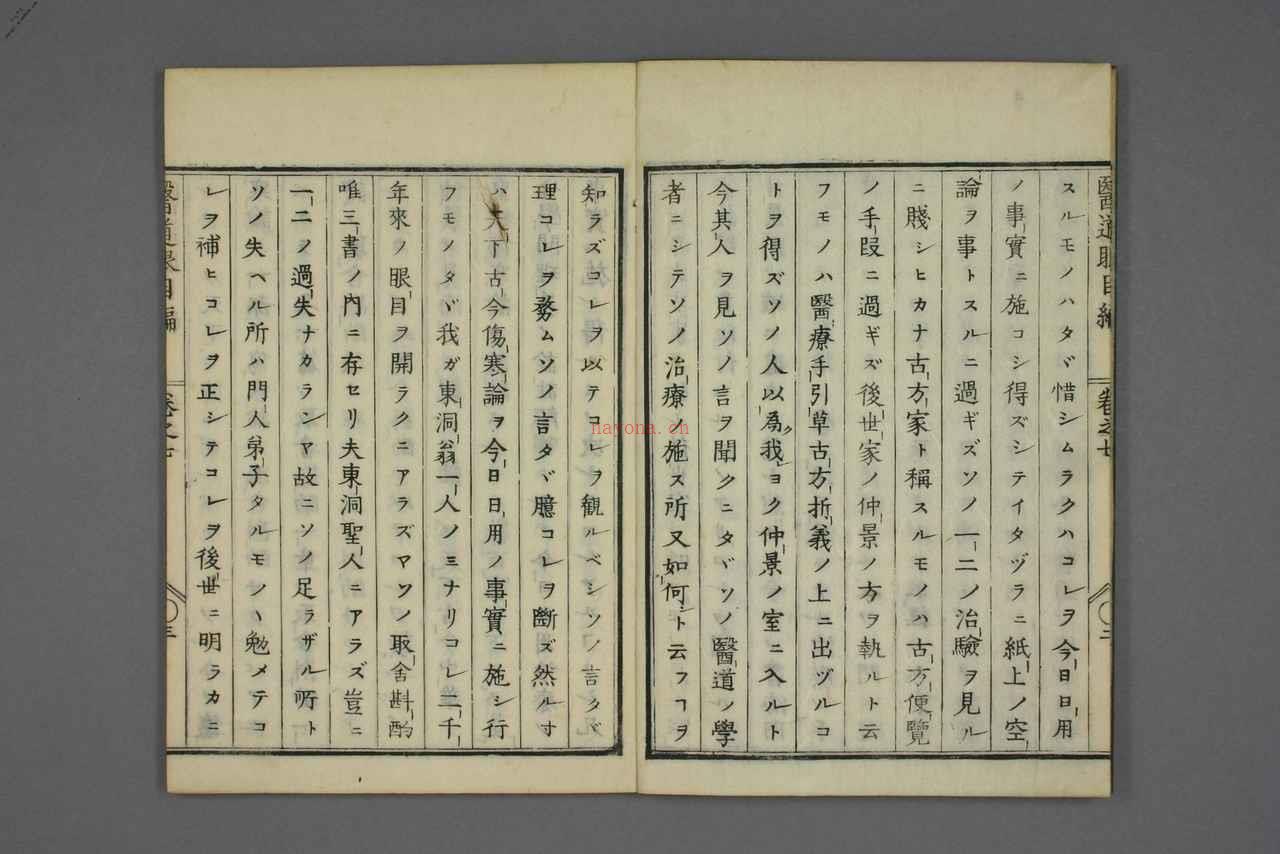 スルモノハタヾ惜シムラクハコレヲ今日日用
ノ事實ニ施コシ得ズシテイタヅラニ紙上ノ空
論ヲ事トスルニ過ギズソノ一二ノ治驗ヲ見ル
ニ賤シヒカナ古方家ト稱スルモノハ古方便覽
ノ手段ニ過ギズ後世家ノ仲景ノ方ヲ執ルト云
フモノハ醫療手引草古方折義ノ上ニ出ヅルコ
トヲ得ズソノ人以爲ク我レヨク仲景ノ室ニ入ルト
今其人ヲ見ソノ言ヲ聞クニタヾソノ醫道ノ學
者ニシテソノ治療ノ施ス所又如何シト云フヿヲ
知ラズコレヲ以テコレヲ観ルベシソノ言タヾ
理コレヲ務ムソノ言タヾ臆コレヲ斷ズ然ルニ
ハ天下古今傷寒論ヲ今日日用ノ事實ニ施シ行
フモノタヾ我ガ東洞翁一人ノミナリコレ二千
年來ノ眼目ヲ開ラクニアラズヤソノ取舍斟酌
唯三書ノ內ニ存セリ夫東洞聖人ニアラズ豈ニ
一二ノ過失ナカランヤ故ニソノ足ラザル所ト
ソノ失ヘル所ハ門人弟子タルモノヽ勉メテコ
レヲ補ヒコレヲ正シテコレヲ後世ニ明ラカニ
醫道眼目編
卷之七
nayona.cn